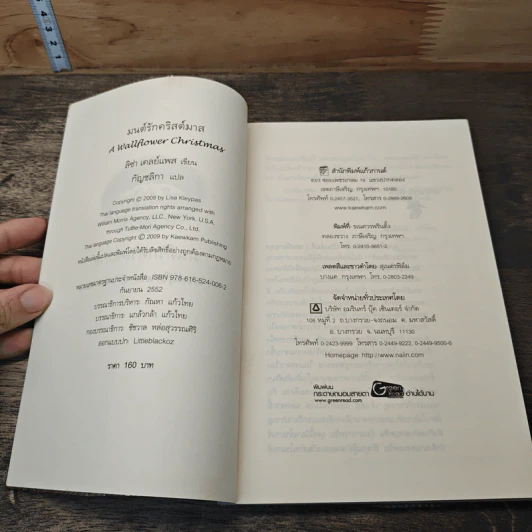 มนต์รักคริสต์มาส
A Wallflower Christmas
ลิซ่า เคลย์แพส เขียน
กัญชลิกา แปล
Copyright © 2008 by Lisa Kleypas
Thai language translation rights arranged with
William Morris Agency, LLC., New York, U.S.A.
through Tuttle-Mori Agency Co., Ltd.
Thai language Copyright © 2009 by Kaewkarn Publishing
หนังสือเล่มนี้แปลและพิมพ์โดยได้รับลิขสิทธิ์อย่างถูกต้องตามกฎหมาย
ISBN 978-616-524-006-2
กันยายน 2552
บรรณาธิการบริหาร กัณหา แก้วไทย
บรรณาธิการ แกล้วกล้า แก้วไทย
กองบรรณาธิการ ชัชวาล หล่อสุวรรณศิริ
ออกแบบปก Littleblackoz
ราคา 160 บาท
สำนักพิมพ์แก้วกานต์
เขตภาษีเจริญ กรุงเทพฯ 10160
www.kaewkarn.com
พิมพ์ที่
ภาษีเจริญ กรุงเทพฯ
โทร.
กรุงเทพฯ โทร. 0-2803-2249
จัดจำหน่ายทั่วประเทศโดย
บริษัท อมรินทร์ บุ๊ค เซ็นเตอร์ จำกัด
108 หมู่ที่ 2 ถ.บางกรวย-จงถนอม ต.มหาสวัสดิ์
อ. บางกรวย จ. นนทบุรี 11130
โทรศัพท์ 0-2423-9999 โทรสาร 0-2449-9222, 0-2449-9500-6
Homepage http://www.naiin.com
พิมพ์บน
กระดาษถนอมสายตา Green Read อ่านได้นาน
www.greenread.com
4
3
2